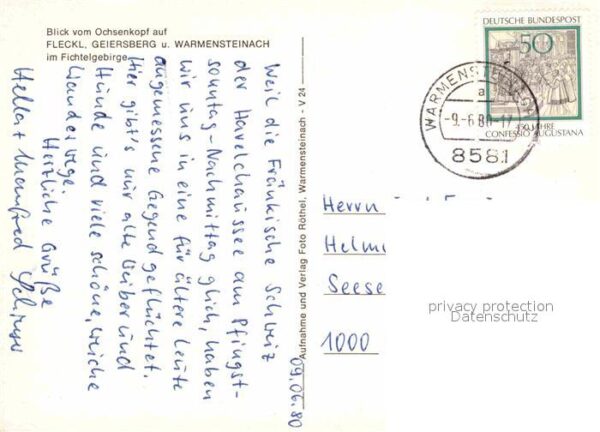 Blick vom Ochsenkopf auf
FLECKL, GEIERSBERG u. WARMENSTEINACH
im Fichtelgebirge
09.06.80
Weil die Fränkische Schweiz
der Havelchaussee am Pfingst-
sonntag-Nachmittag glich, haben
wir uns in eine für ältere Leute
angemessene Gegend geflüchtet.
Hier gibt's nur alte Weiber und
Hunde und viele schöne, weiche
Wanderwege.
Herzliche Grüße
Hella + Manfred
Aufnahme und Verlag Foto Röthel, Warmensteinach - V 24
DEUTSCHE BUNDESPOST
50
450 JAHRE
CONFESSIO AUGUSTANA
WARMENSTEINACH
a
-9.-6.80-17
8581
Herrn
Helm
Seese
1000
privacy protection
Datenschutz